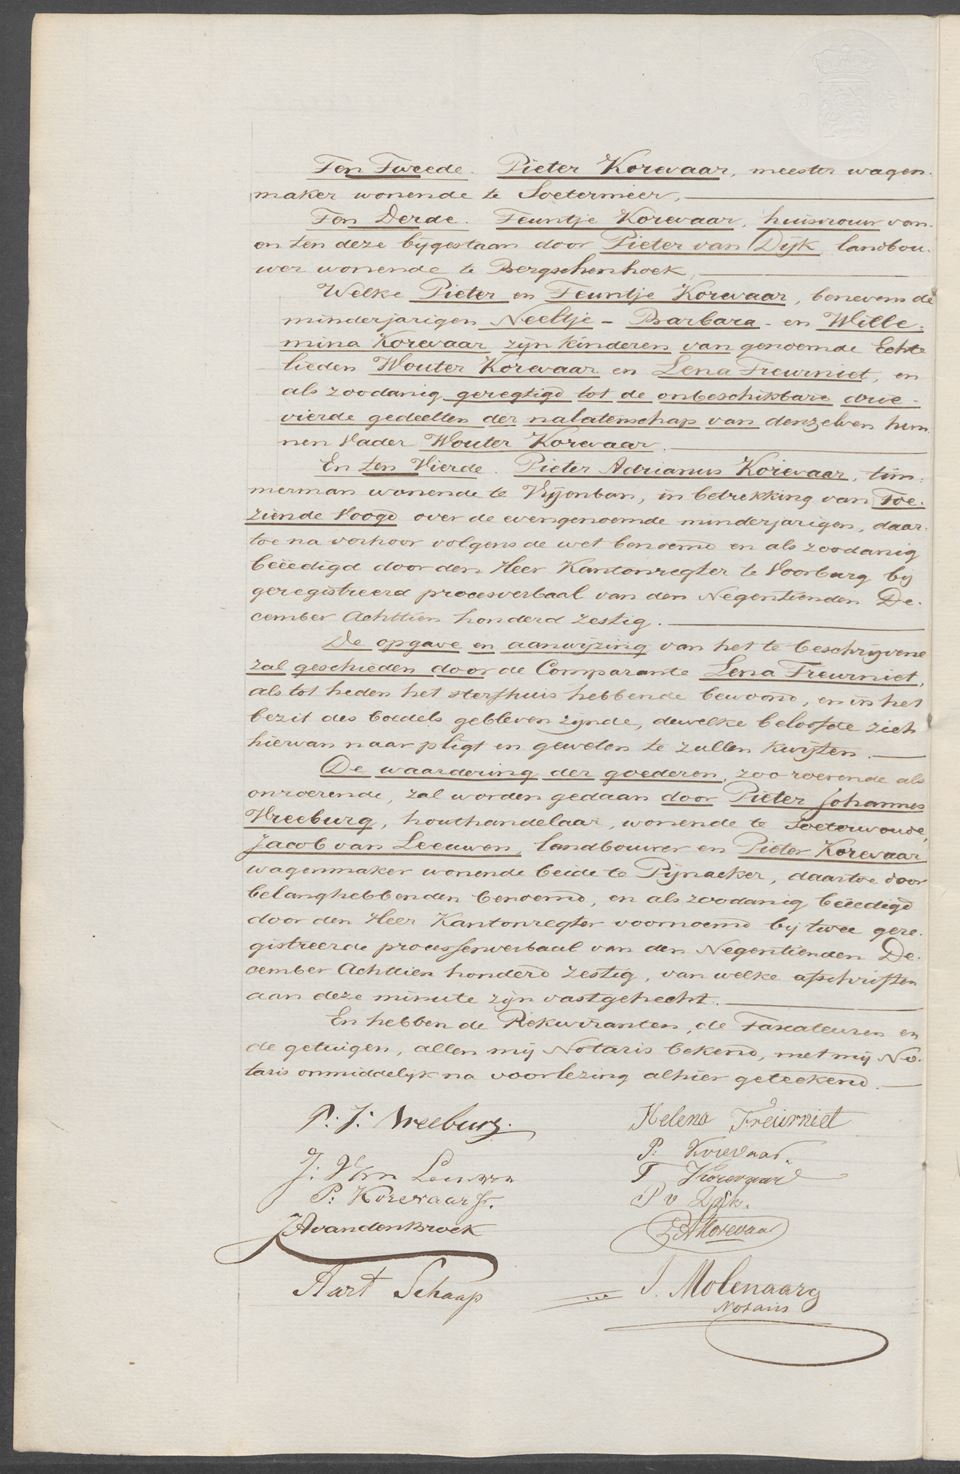 Ten Tweede. Pieter Korevaar, meester wagen-
maker wonende te Soetermeer,
Ten Derde. Teuntje Korevaar, huisvrouw van
en ten deze bijgestaan door Pieter van Dijk, landbou-
wer wonende te Bergschenhoek,
Welke Pieter en Teuntje Korevaar, benevens de
minderjarigen Neeltje - Barbara - en Wille-
mina Korevaar zijn kinderen van genoemde Echte
lieden Wouter Korevaar en Lena Treurniet, en
als zoodanig geregtigd tot de onbeschikbare drie-
vierde gedeelten der nalatenschap van denzelven hun-
nen Vader Wouter Korevaar.
En ten Vierde. Pieter Adrianus Korevaar, tim-
merman wonende te Vrijenban, in betrekking van Toe-
ziende Voogd over de evengenoemde minderjarigen, daar-
toe na verhoor volgens de wet benoemd en als zoodanig
beëedigd door den Heer Kantonregter te Voorburg bij
geregistreerd procesverbaal van den Negentienden De-
cember Achttien honderd zestig.
De opgave en aanwijzing van het te beschrijvene
zal geschieden door de Comparante Lena Treurniet,
als tot heden het sterfhuis hebbende bewoond, en in het
bezit des boedels gebleven zijnde, dewelke beloofde zich
hiervan naar pligt en geweten te zullen kwijten.
De waardering der goederen, zoo roerende als
onroerende, zal worden gedaan door Pieter Johannes
Vreeburg, houthandelaar, wonende te Soeterwoude,
Jacob van Leeuwen, landbouwer en Pieter Korevaar
wagenmaker wonende beide te Pijnacker, daartoe door
belanghebbenden benoemd, en als zoodanig beëedigd
door den Heer Kantonregter voornoemd bij twee gere-
gistreerde processenverbaal van den Negentienden De-
cember Achttien honderd zestig, van welke afschriften
aan deze minute zijn vastgehecht.
En hebben de Rekwiranten, de Taxateuren en
de getuigen, allen mij Notaris bekend, met mij No-
taris onmiddelijk na voorlezing alhier geteekend.
P. J. Vreeburg. Helena Treurniet
J. Van Leeuwen P. Korevaar.
P. Korevaar Jr. T Korevaar
P v Dijk.
JA van den Broek PA Korevaar
Aart Schaap J. Molenaar
Notaris